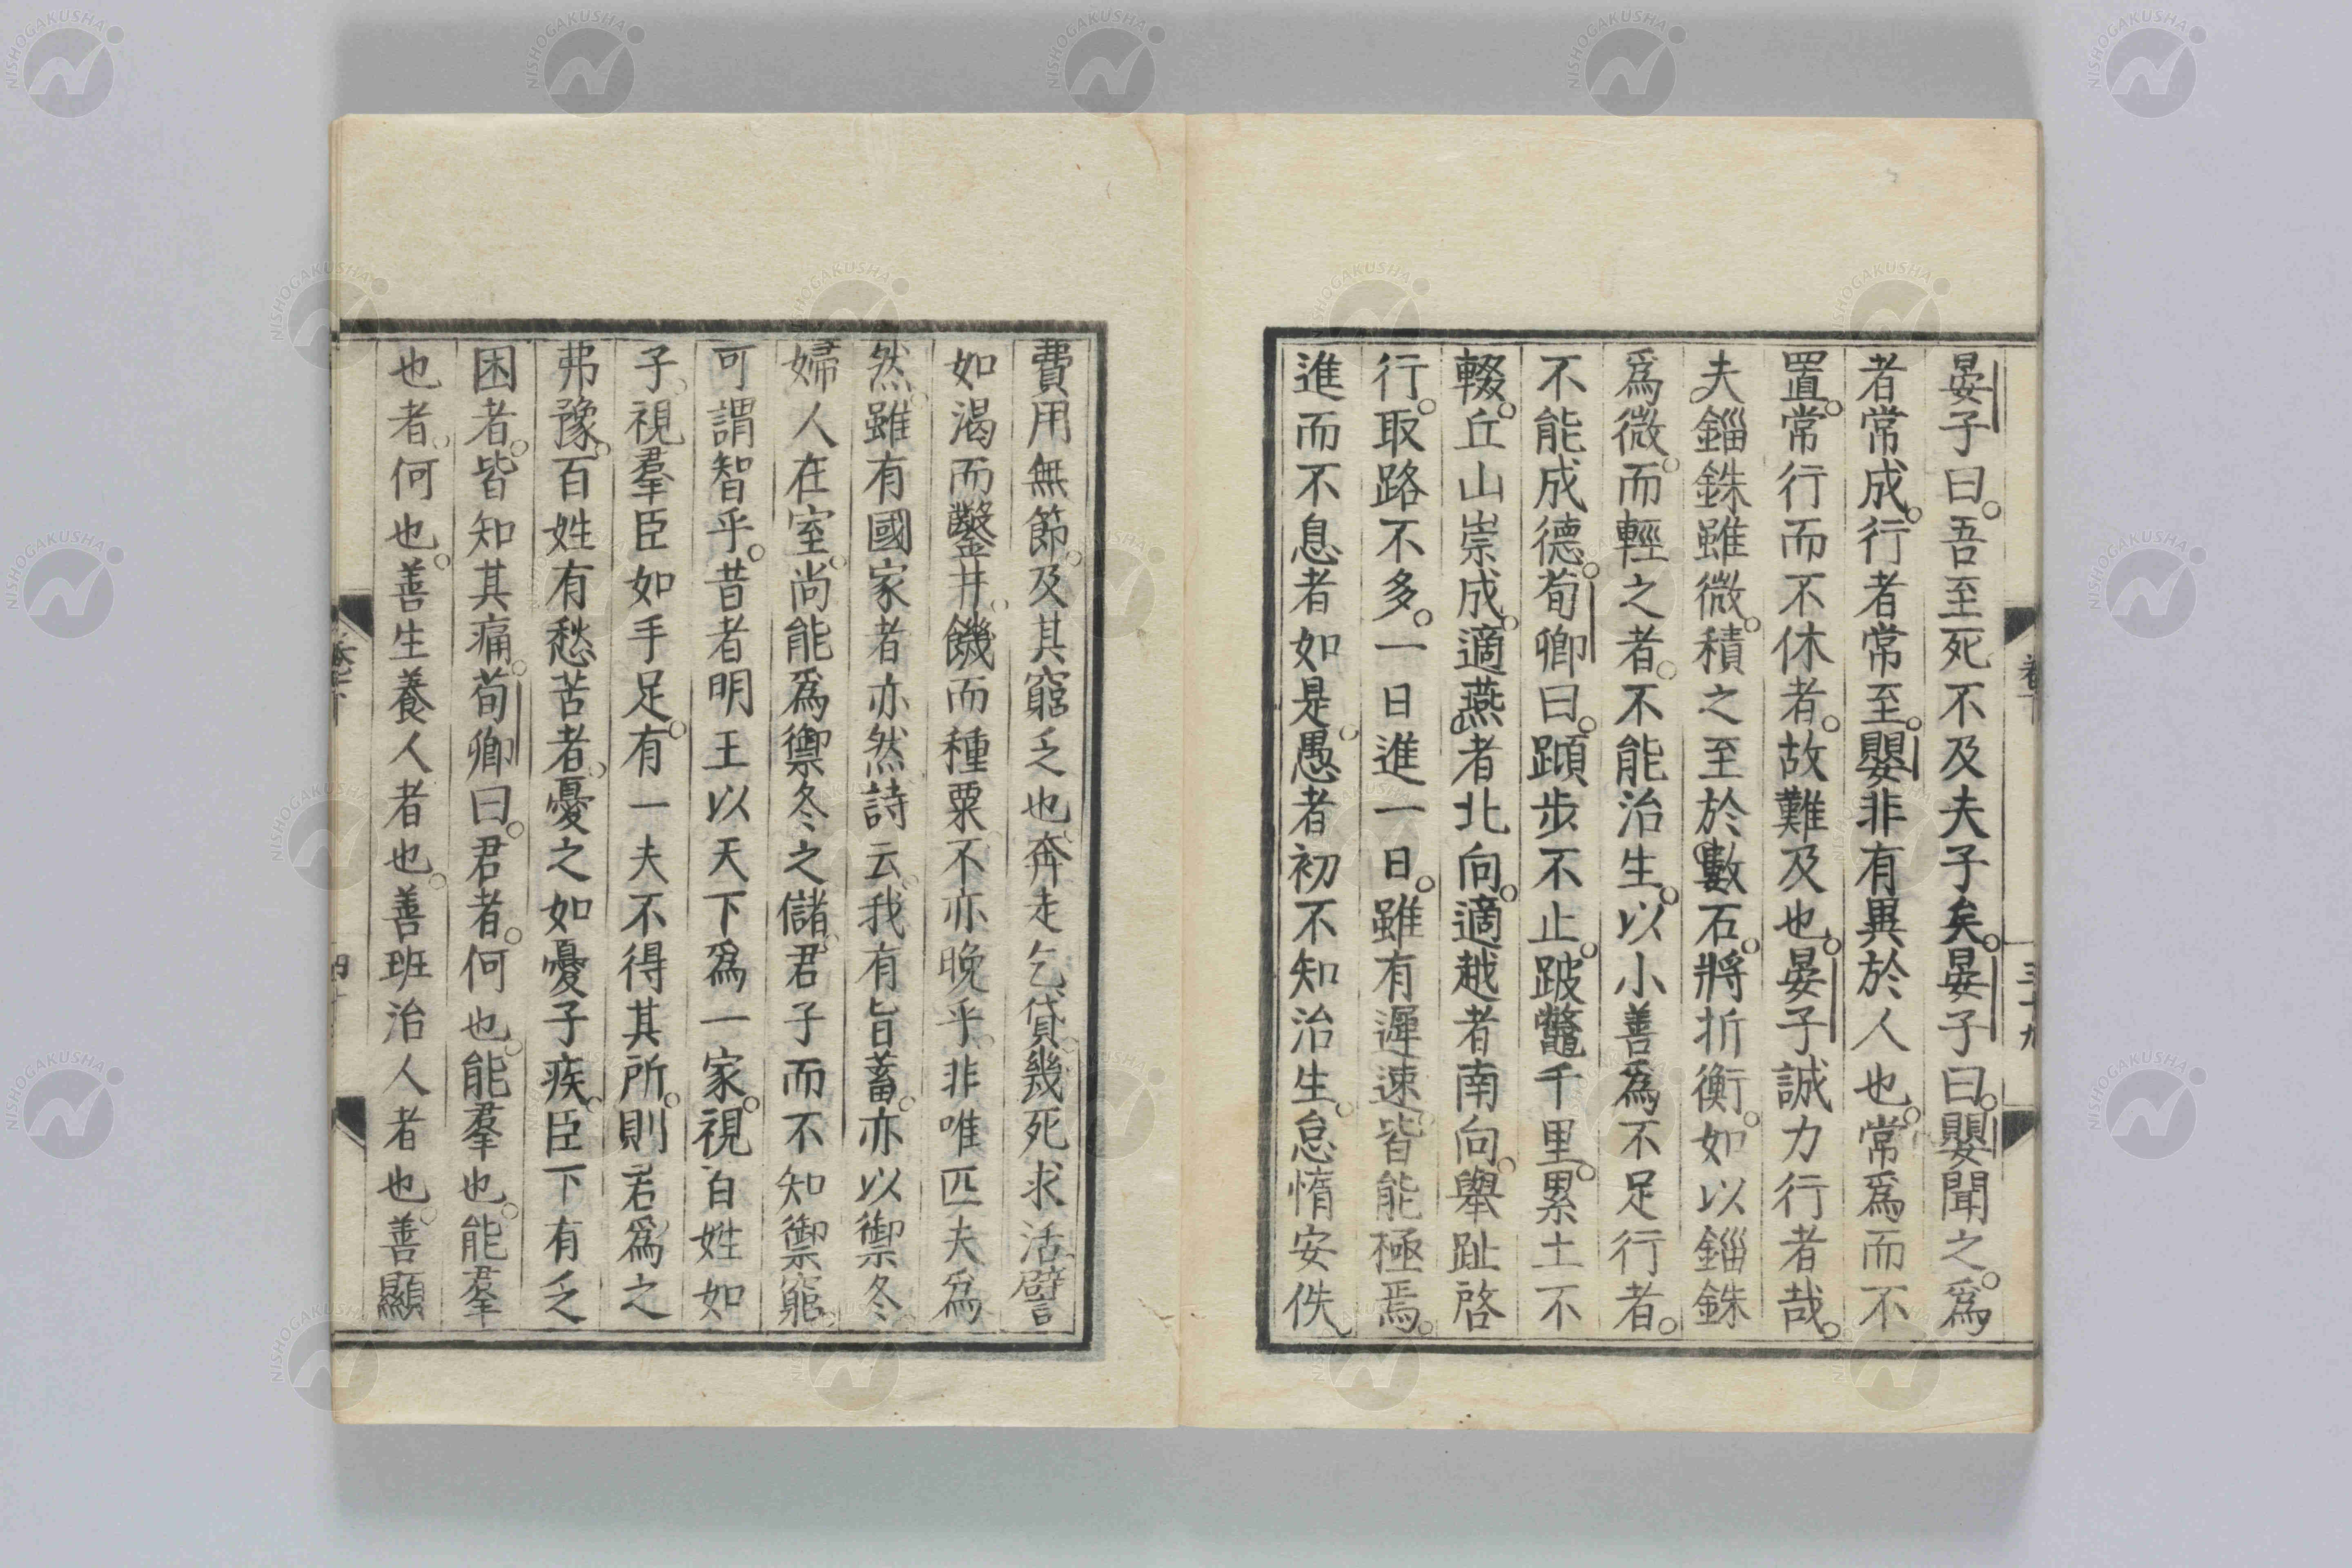 晏子曰。吾至死不及夫子矣。晏子曰。嬰聞之。爲
者常成。行者常至。嬰非有異於人也。常爲而不
置。常行而不休者。故難及也。晏子誠力行者哉。
夫錙銖雖微。積之至於數石。將折衡。如以錙銖
爲微。而輕之者。不能治生。以小善爲不足行者。
不能成德。荀卿曰。蹞步不止。跛鼈千里。累土不
輟。丘山崇成。適燕者北向。適越者南向。舉趾啓
行。取路不多。一日進一日。雖有遲速。皆能極焉。
進而不息者如是。愚者初不知治生。怠惰安佚
卷下
三十九
費用無節。及其窮乏也奔走乞貸。幾死求活。譬
如渴而鑿井。饑而種粟。不亦晚乎。非唯匹夫爲
然。雖有國家者亦然。詩云。我有旨蓄。亦以禦冬。
婦人在室。尚能爲禦冬之儲。君子而不知禦窮。
可謂智乎。昔者明王以天下爲一家。視百姓如
子。視羣臣如手足。有一夫不得其所。則若爲之
弗豫。百姓有愁苦者。憂之如憂子疾。臣下有乏
困者。皆知其痛。荀卿曰。君者。何也。能羣也。能羣
也者。何也。善生養人者也。善班治人者也。善顯